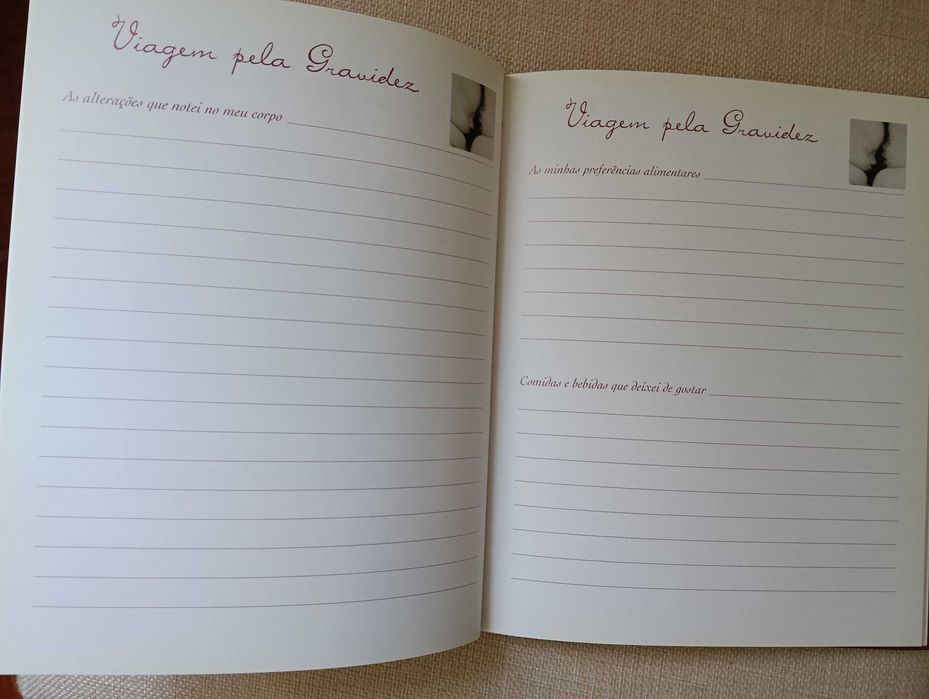 Viagem pela Gravidez
As alterações que notei no meu corpo
Viagem pela Gravidez
As minhas preferências alimentares
Comidas e bebidas que deixei de gostar